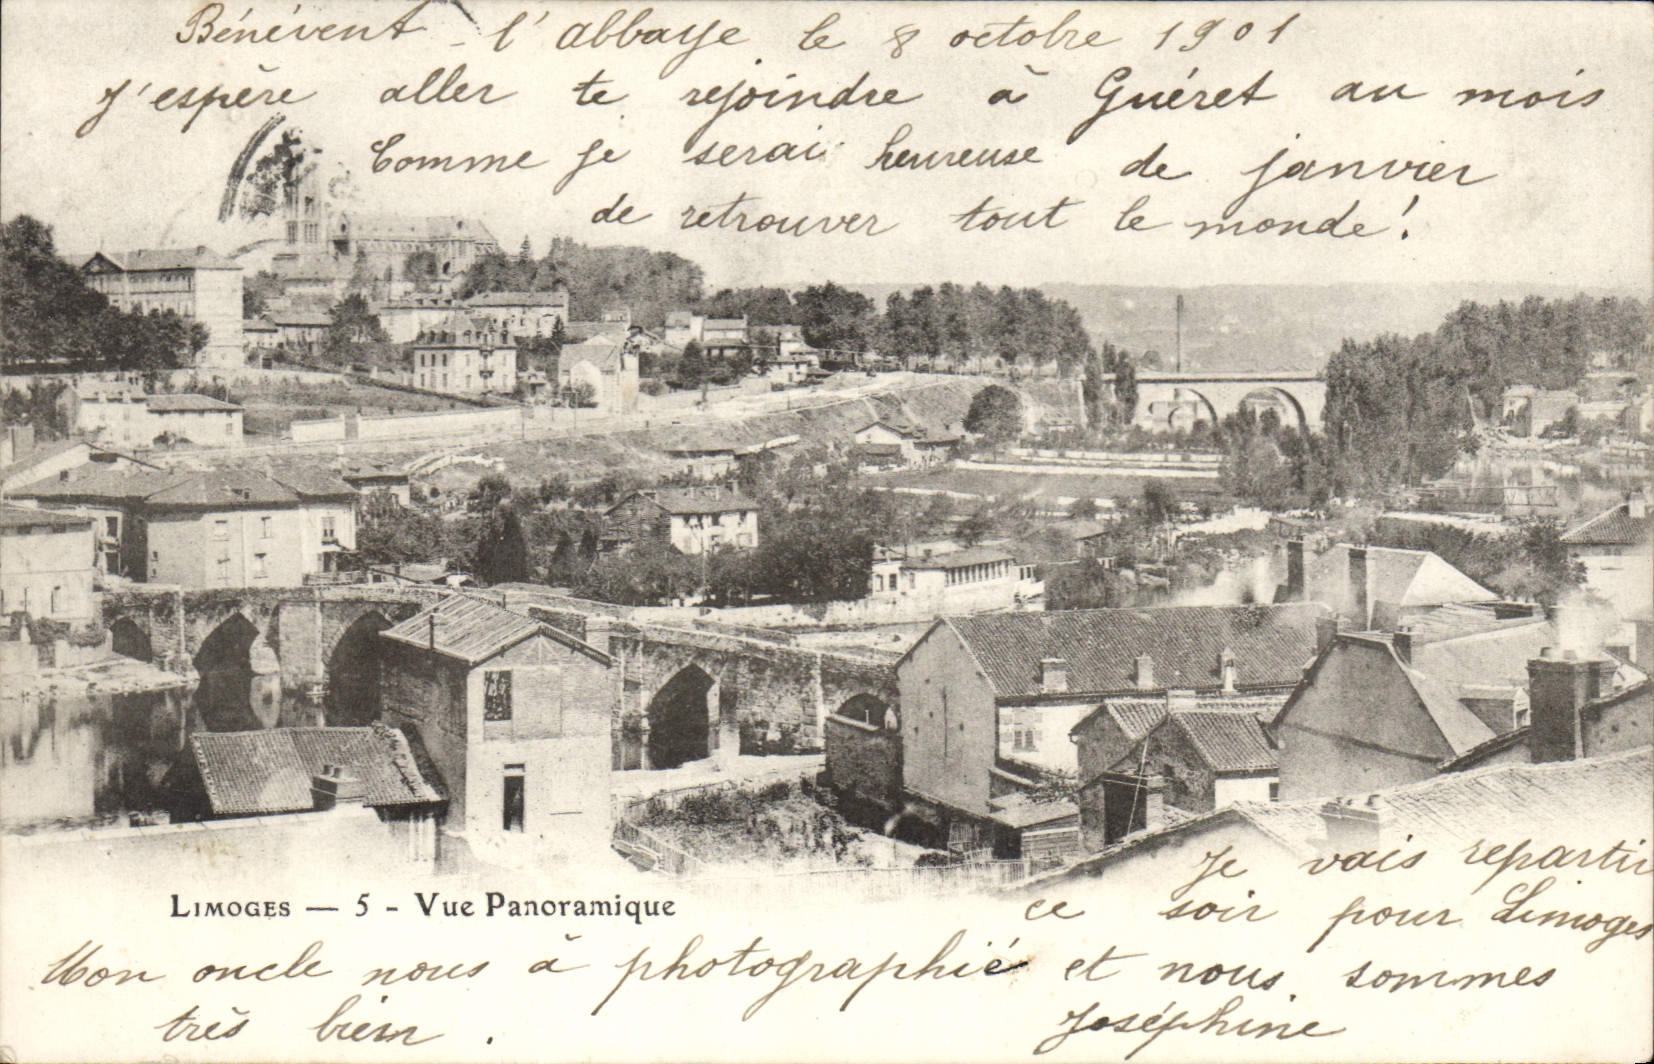 Bénévent - l'abbaye le 8 octobre 1901
J'espère aller te rejoindre à Guéret au mois
Comme je serai heureuse de janvier
de retrouver tout le monde!
Je vais repartir
LIMOGES — 5 - Vue Panoramique
ce soir pour Limoges
Mon oncle nous à photographié et nous sommes
très bien. Joséphine